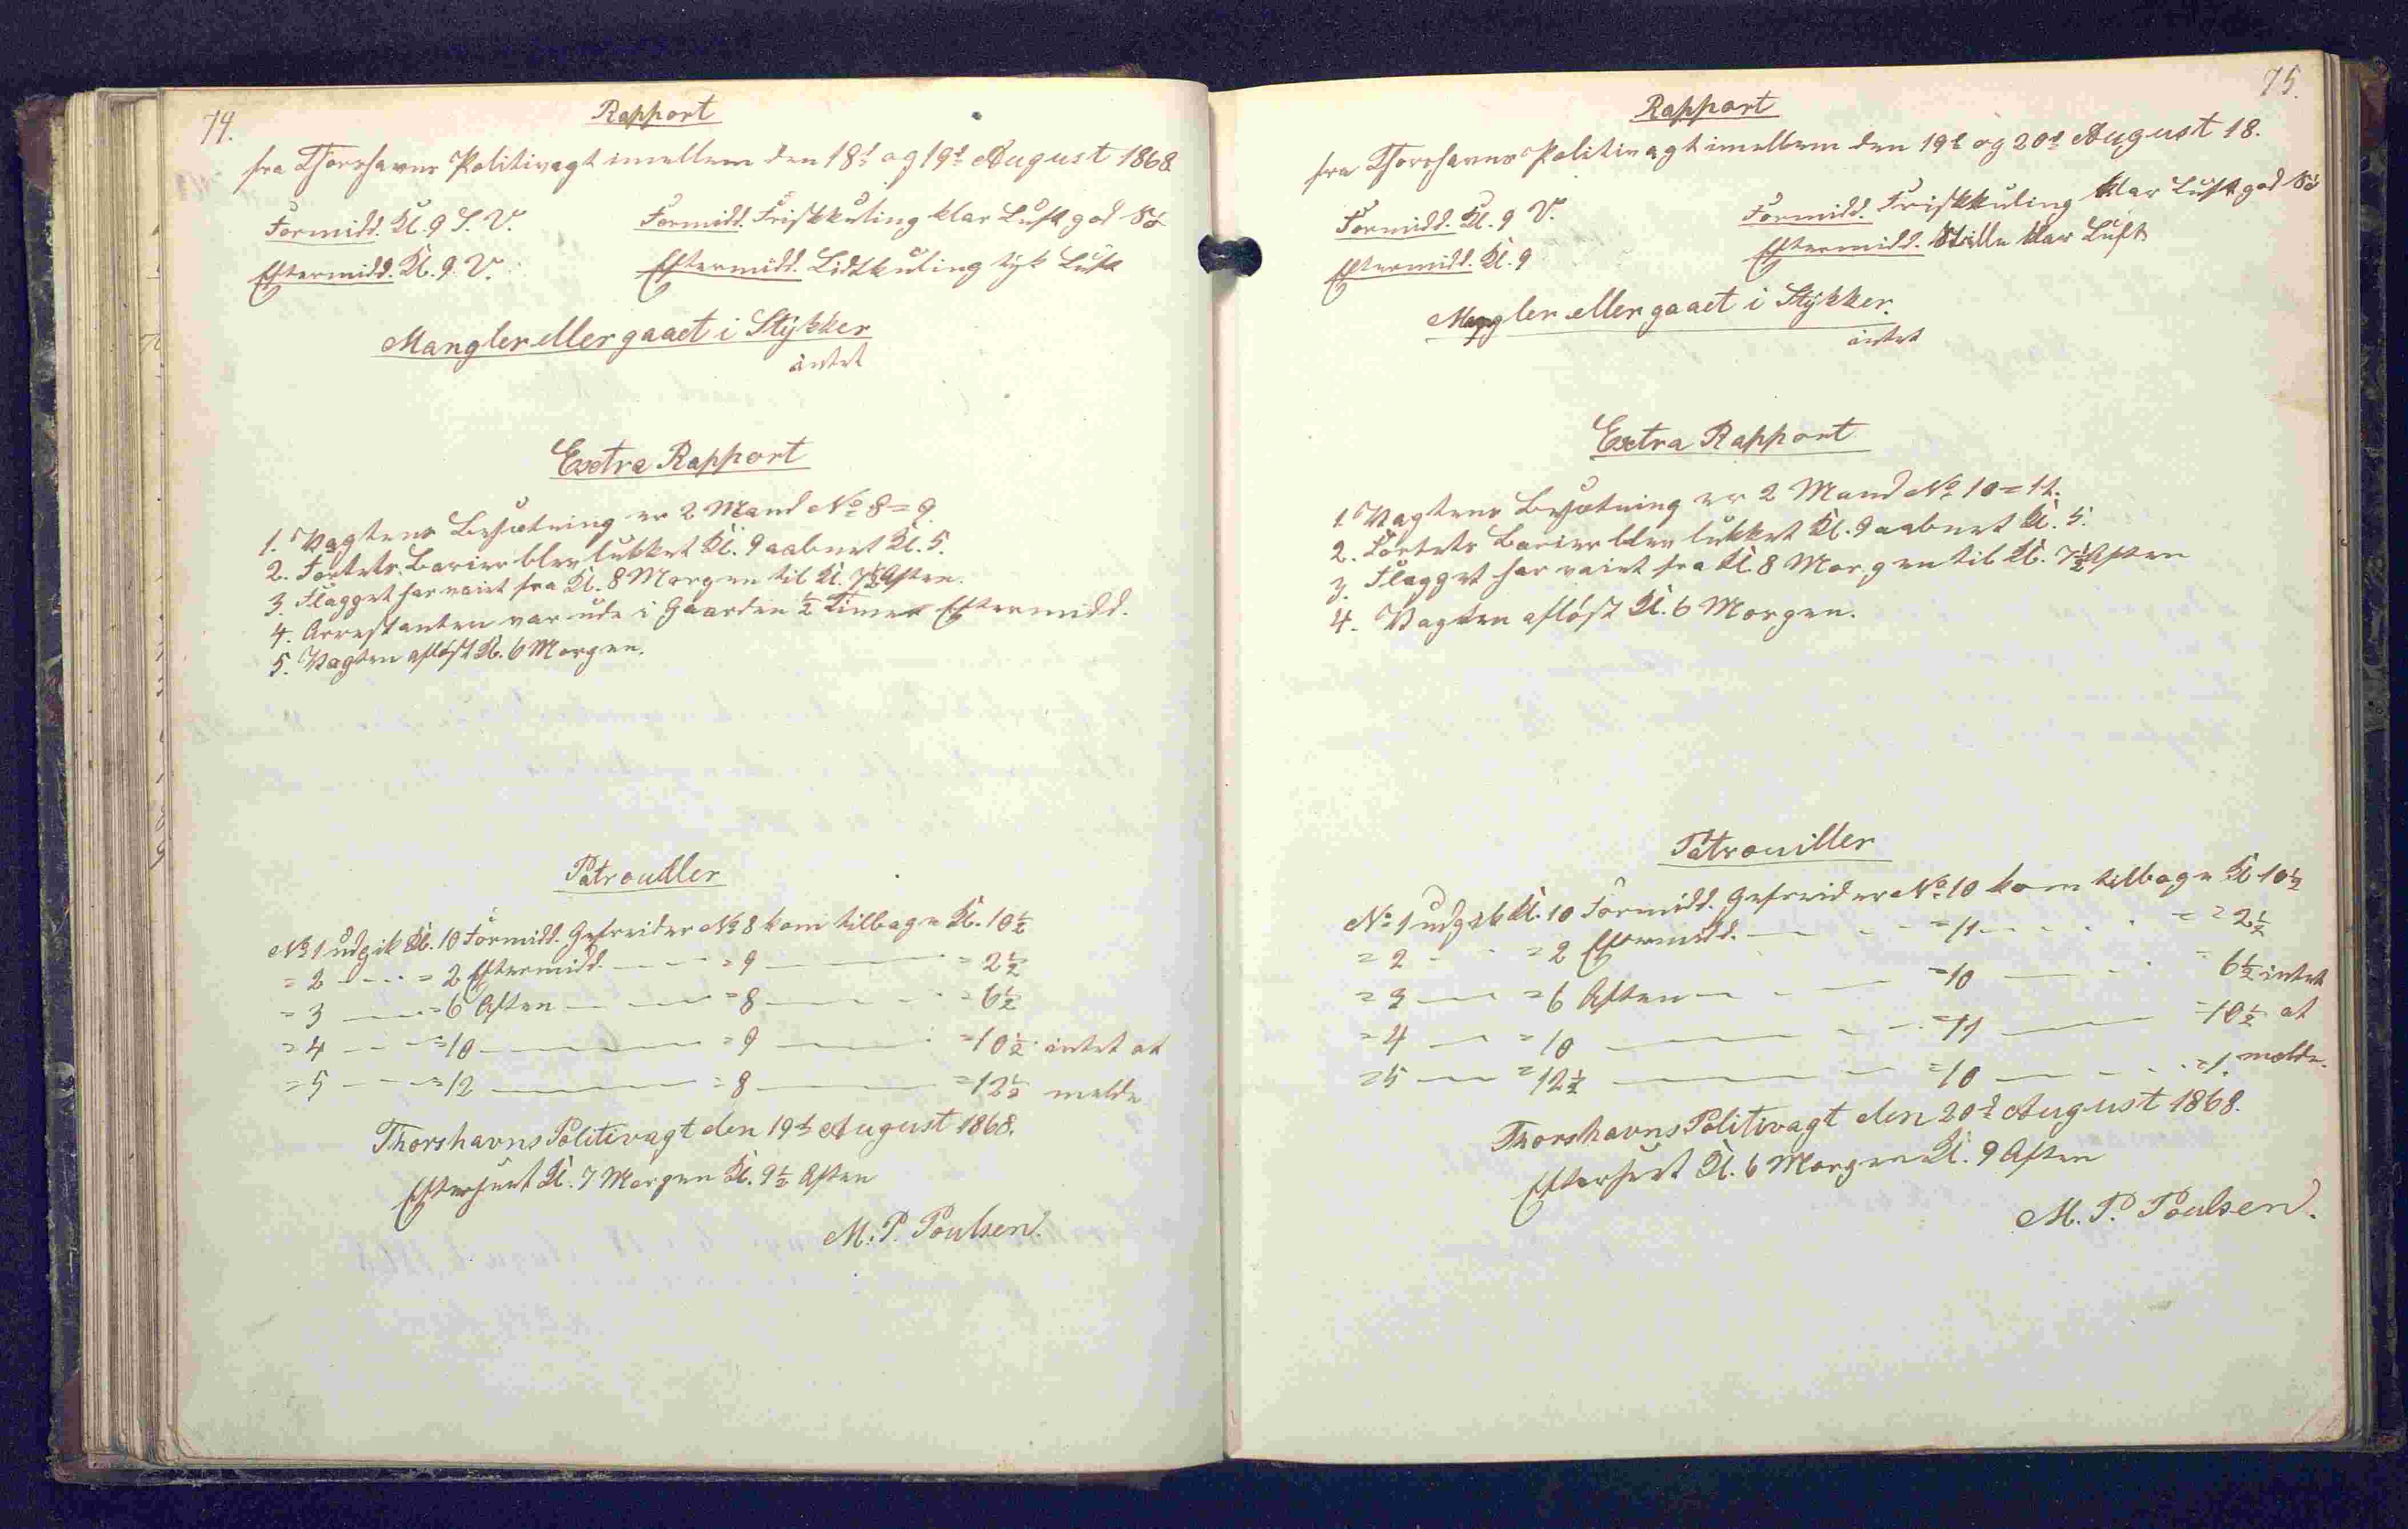 74.
Rapport
fra Thorshavns Politivagt imellem den 18d og 19d August 1868
Formidd. Kl. 9 S. V. Formidd. Friskkuling klar Luft god Sö
Eftermidd. Kl. 9. V. Eftermidd. Lidtkuling tyk Luft
Mangler eller gaaet i Stÿkker
intet
Exstra Rapport
1. Vagtens Besætning er 2 Mand No 8 = 9.
2. Fortets Barier blev lukket Kl. 9 aabnet Kl. 5.
3. Flagget har vaiet fra Kl. 8 Morgen til Kl. 7½ Aften.
4. Arrestanten var ude i Gaarden ½ Time Eftermidd.
5. Vagten aflöst Kl. 6 Morgen.
Patrouiller
No 1 udgik Kl. 10 Formidd. Gefreider No 8 kom tilbage Kl. 10½
= 2 — = 2 Eftermidd. — = 9 — = 2½
= 3 — = 6 Aften — = 8 — = 6½
= 4 — = 10 — = 9 — = 10½ intet at
= 5 — = 12 — = 8 — = 12½ melde
Thorshavns Politivagt den 19d August 1868.
Efterseet Kl. 7 Morgen Kl. 9½ Aften
M. P. Poulsen.
75.
Rapport
fra Thorshavns Politivagt imellem den 19d og 20d August 18.
Formidd. Kl. 9 V. Formidd. Friskkuling klar Luft god Sö
Eftermidd. Kl. 9 Eftermidd. Stille klar Luft
Mangler eller gaaet i Stÿkker.
intet
Extra Rapport
1. Vagtens Besætning er 2 Mand No 10 = 11.
2. Fortets Barier blev lukket Kl. 9 aabnet Kl. 5.
3. Flagget har vaiet fra Kl. 8 Morgen til Kl. 7½ Aften
4. Vagten aflöst Kl. 6 Morgen.
Patrouiller
No 1 udgik Kl. 10 Formidd. Gefreider No 10 kom tilbage Kl 10½
= 2 — = 2 Eftermidd. — = 11 — = 2½
= 3 — = 6 Aften — = 10 — = 6½ intet
= 4 — = 10 — = 11 — = 10½ at
= 5 — = 12½ — = 10 — = 1. melde.
Thorshavns Politivagt den 20d August 1868.
Efterseet Kl. 6 Morgen Kl. 9 Aften
M. P. Poulsen.